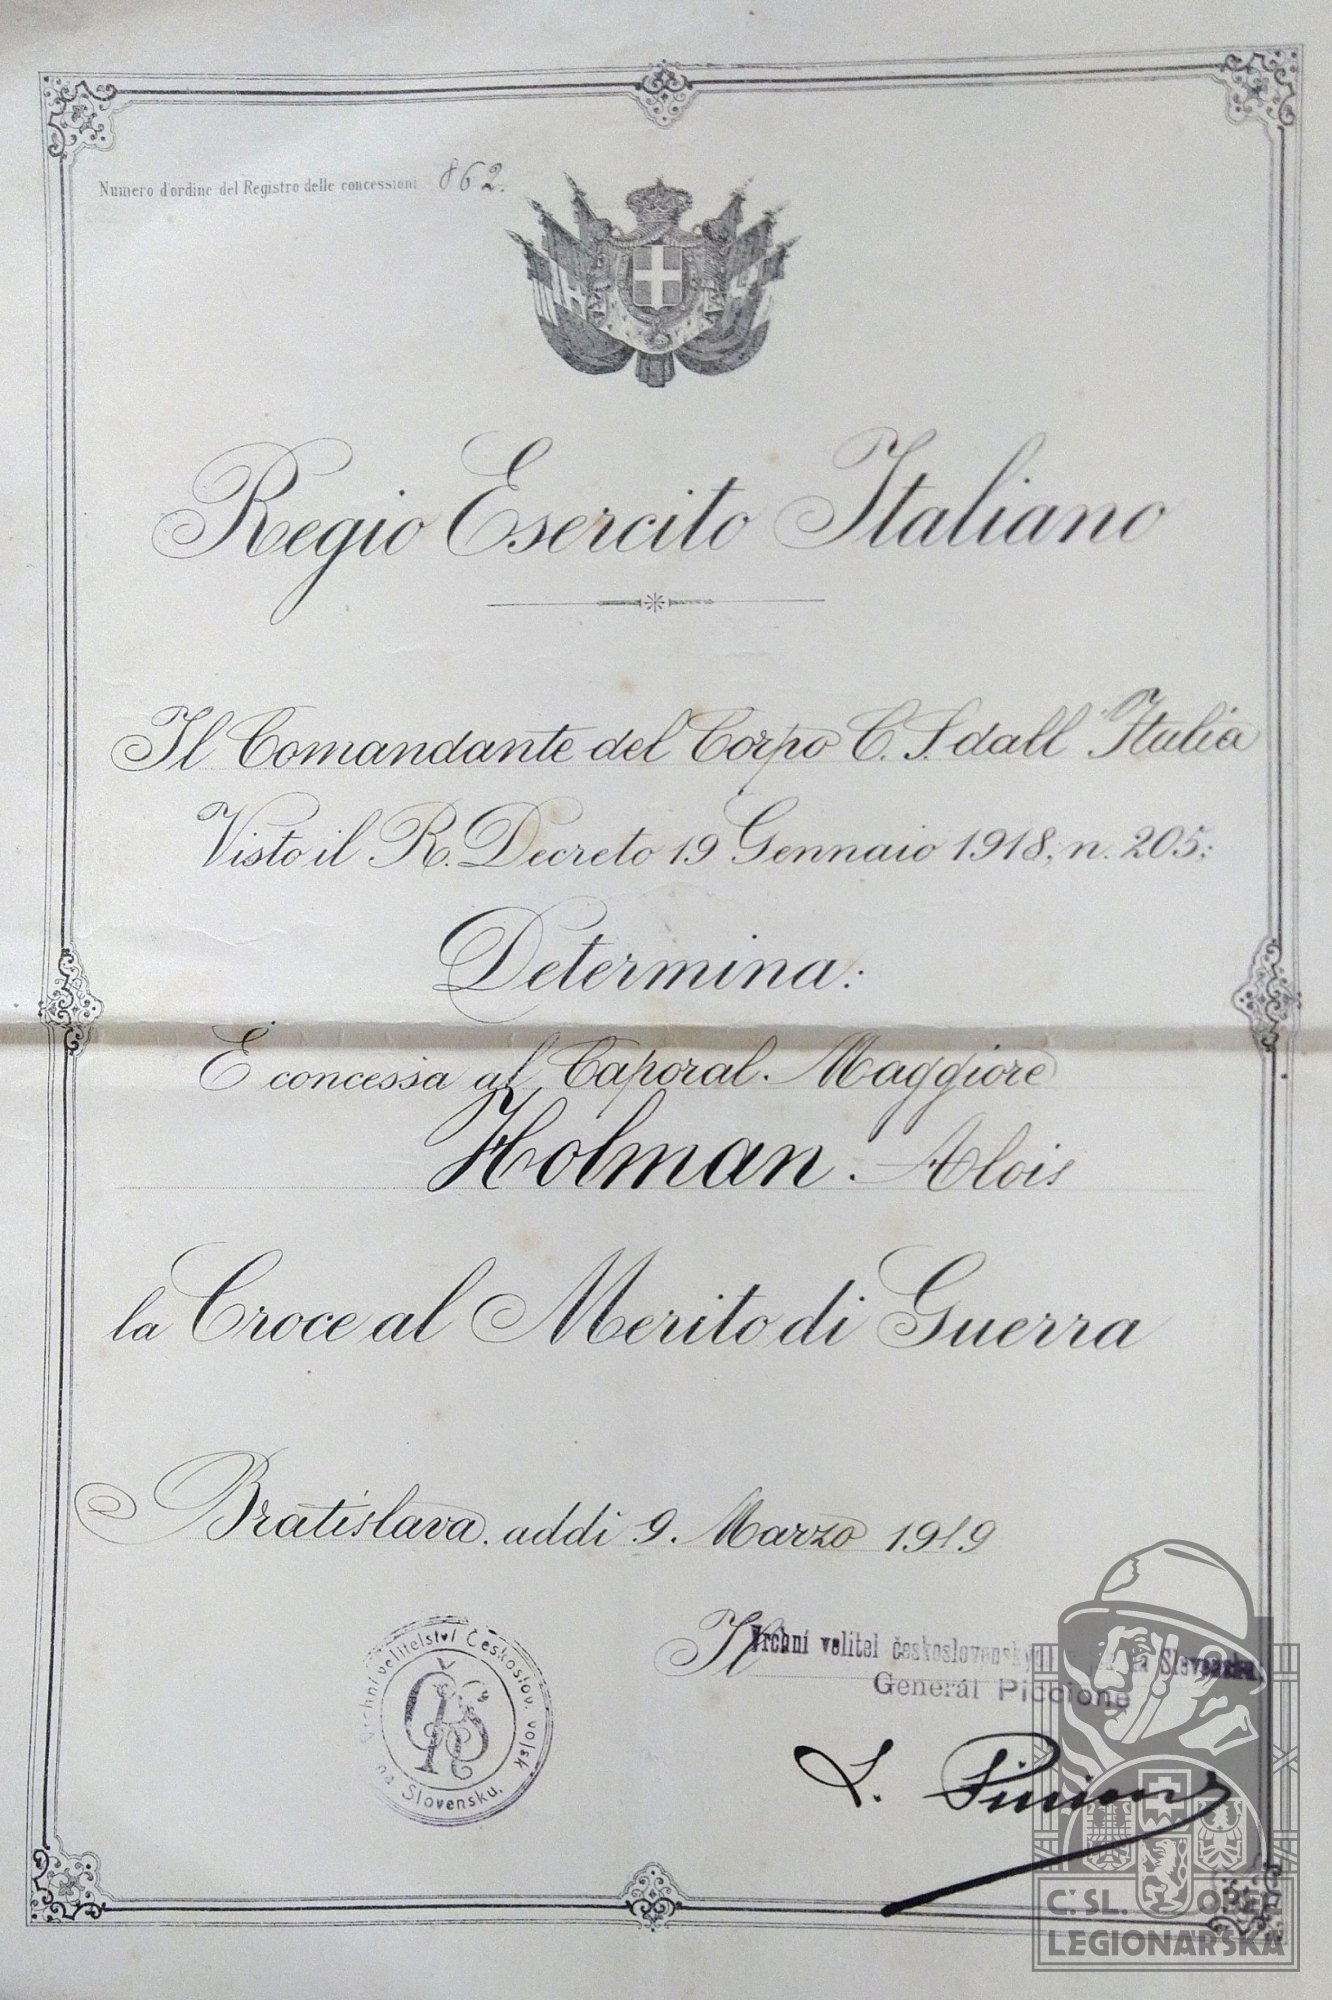 Numero d'ordine del Registro delle concessioni 862.
Regio Esercito Italiano
Il Comandante del Corpo C. S. dall' Italia
Visto il R. Decreto 19 Gennaio 1918, n. 205:
Determina:
È concessa al Caporal. Maggiore
Holman. Alois
la Croce al Merito di Guerra
Bratislava, addi 9. Marzo 1919
Il
Vrchní velitel československých na Slovensku.
Generál Piccione
L. Piccione
Vrchní velitelství Českoslov. vojsk na Slovensku.
ČS
Č.SL. OBEC
LEGIONÁŘSKÁ